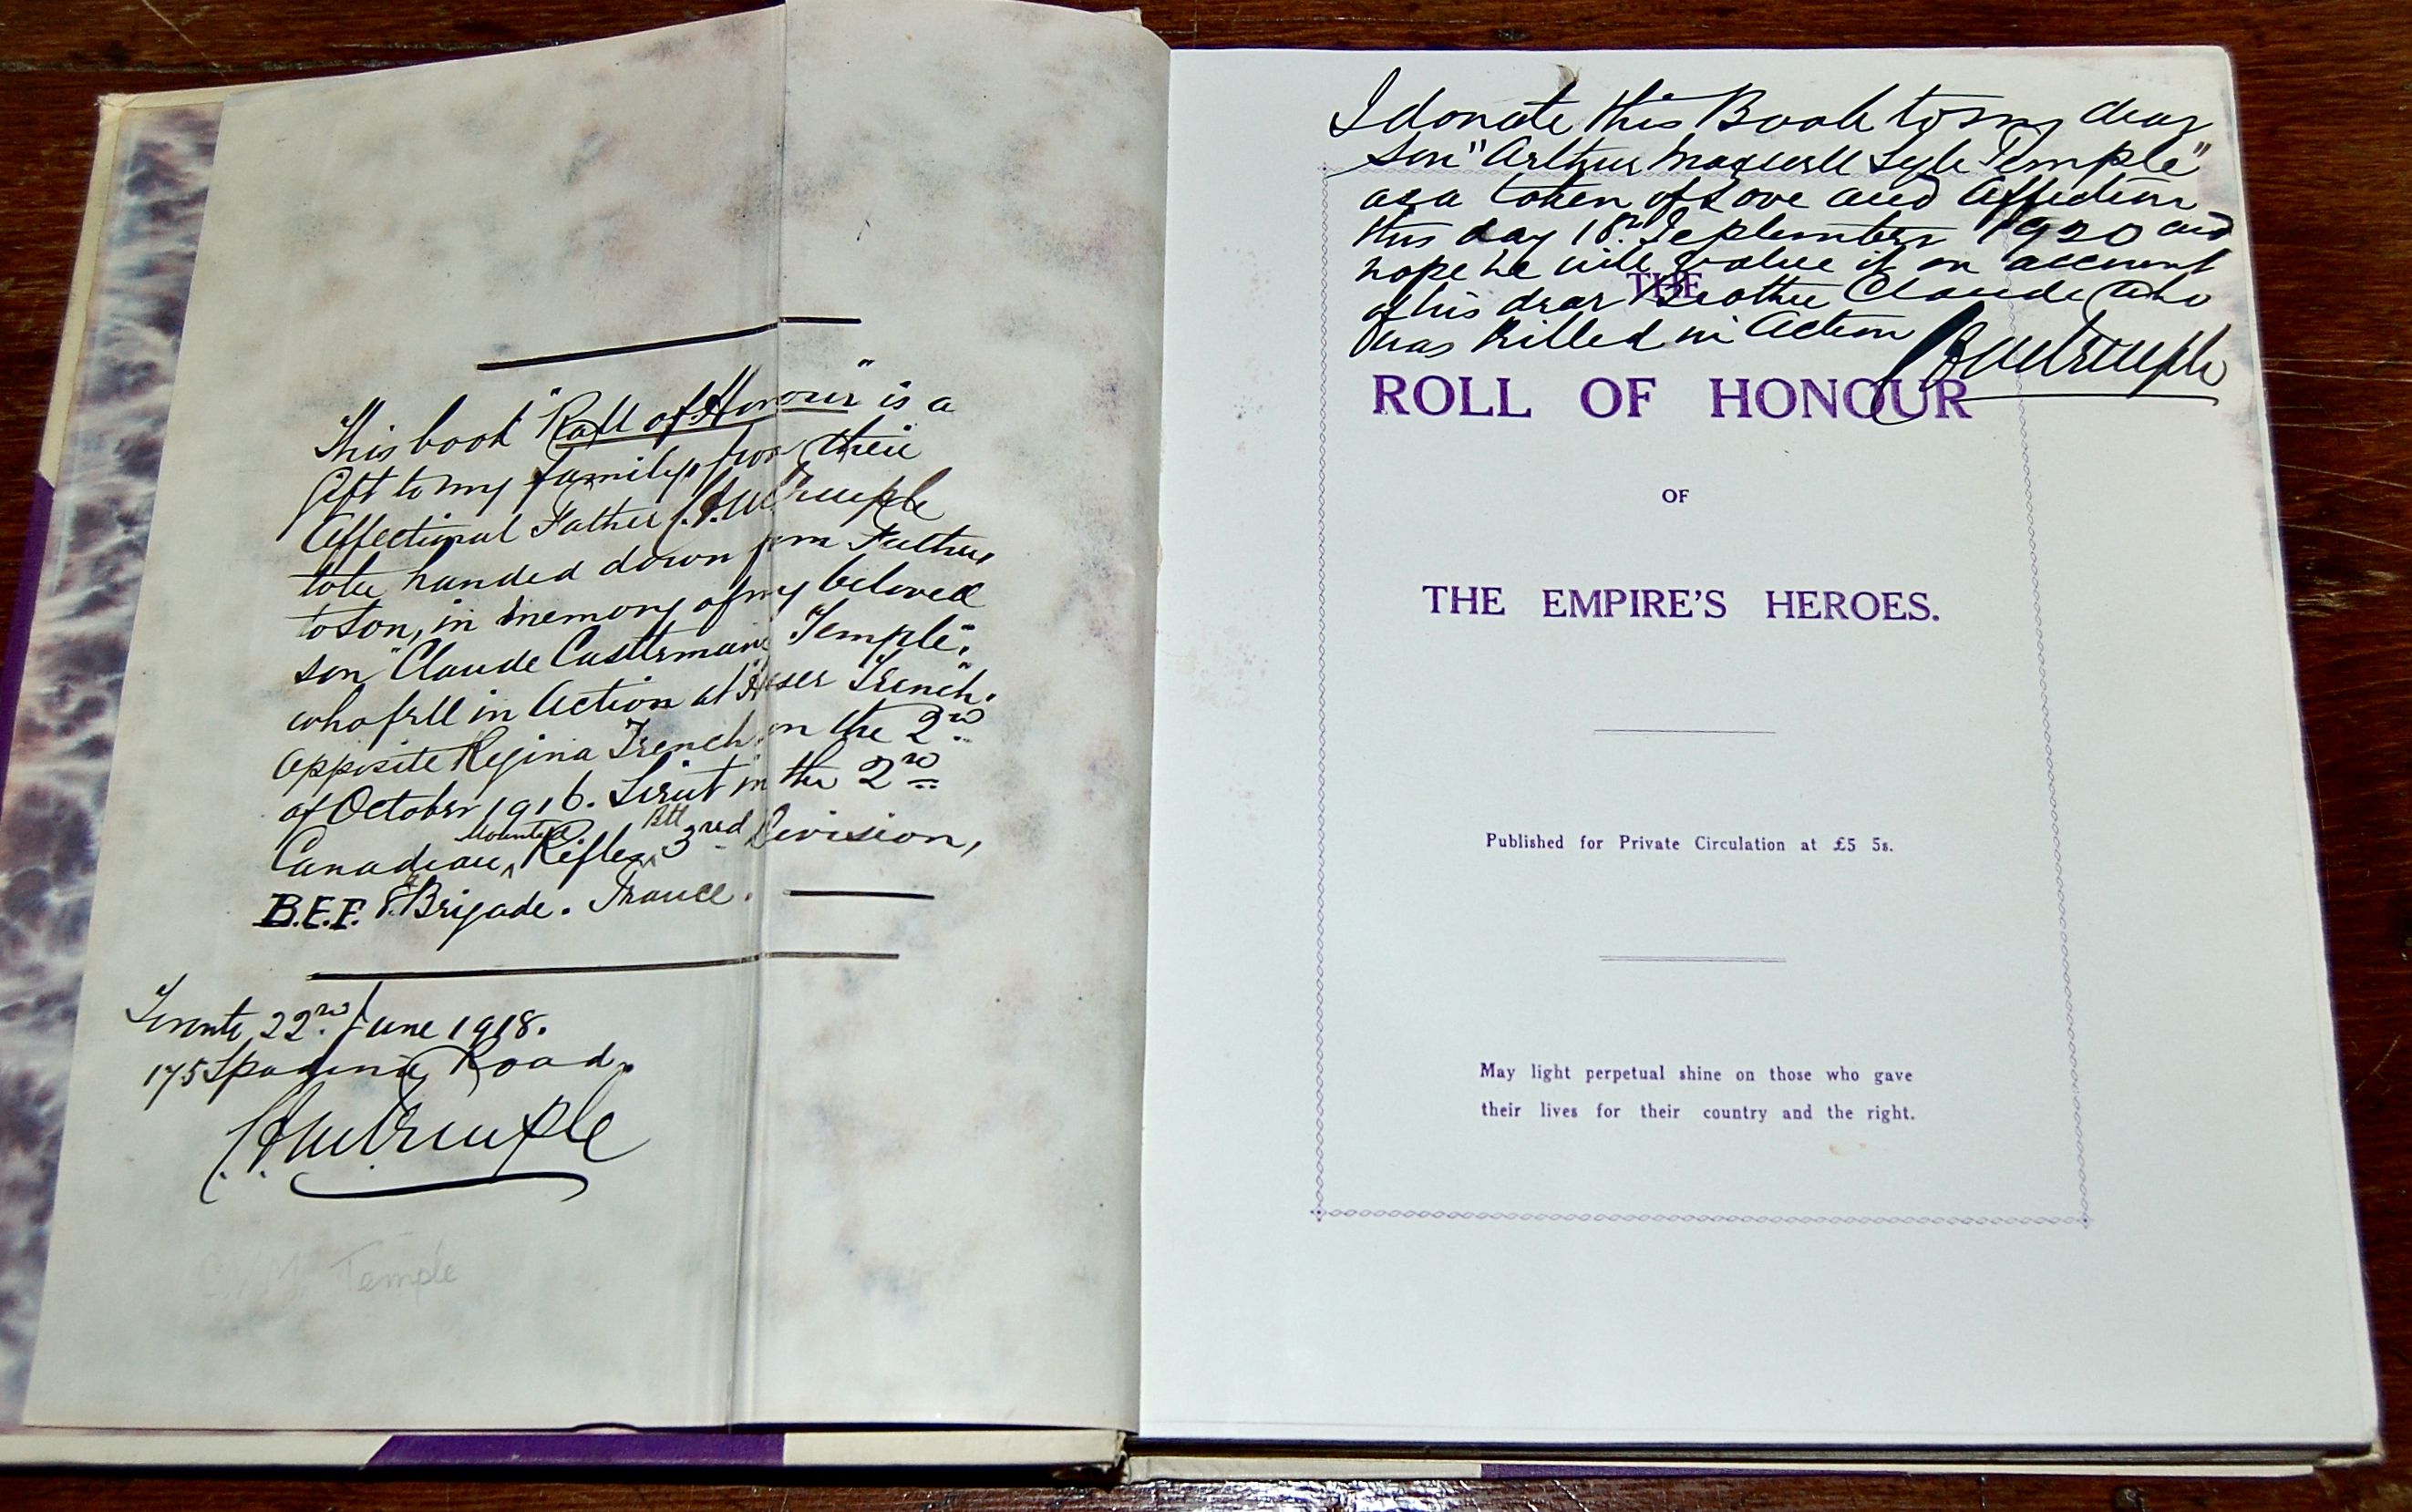 This book "Roll of Honour" is a
Gift to my family, from their
Affectional Father C.A.M. Temple
to be handed down from Father
to Son, in memory of my beloved
son "Claude Castlemaine Temple".
who fell in Action at "Hesser Trench".
opposite Regina Trench on the 2nd
of October 1916. Lieut in the 2nd
Canadian Mounted Rifles Btt 3rd Division,
B.E.F. 8th Brigade. France.
Toronto 22nd June 1918.
175 Spadina Road.
C.A.M. Temple
C.A.M. Temple
I donate this Book to my dear
son "Arthur Maxwell Lyle Temple"
as a token of Love and Affection
this day 18th September 1920 and
hope he will value it on account
of his dear Brother Claude who
was killed in Action C.A.M. Temple
THE
ROLL OF HONOUR
OF
THE EMPIRE'S HEROES.
Published for Private Circulation at £5 5s.
May light perpetual shine on those who gave
their lives for their country and the right.